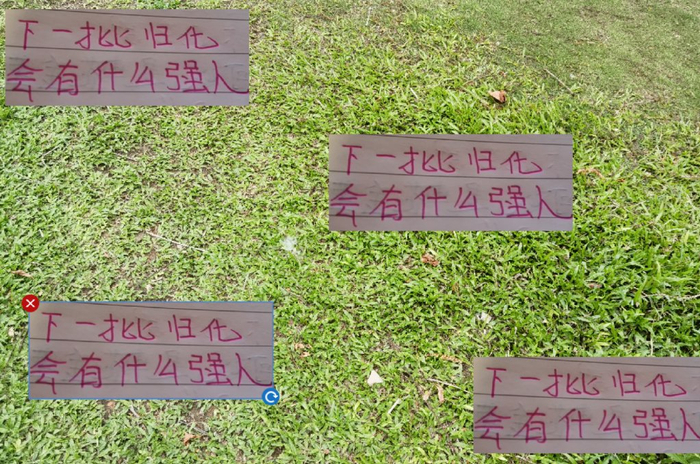 下一批归化
会有什么强人
下一批归化
会有什么强人
下一批归化
会有什么强人
下一批归化
会有什么强人